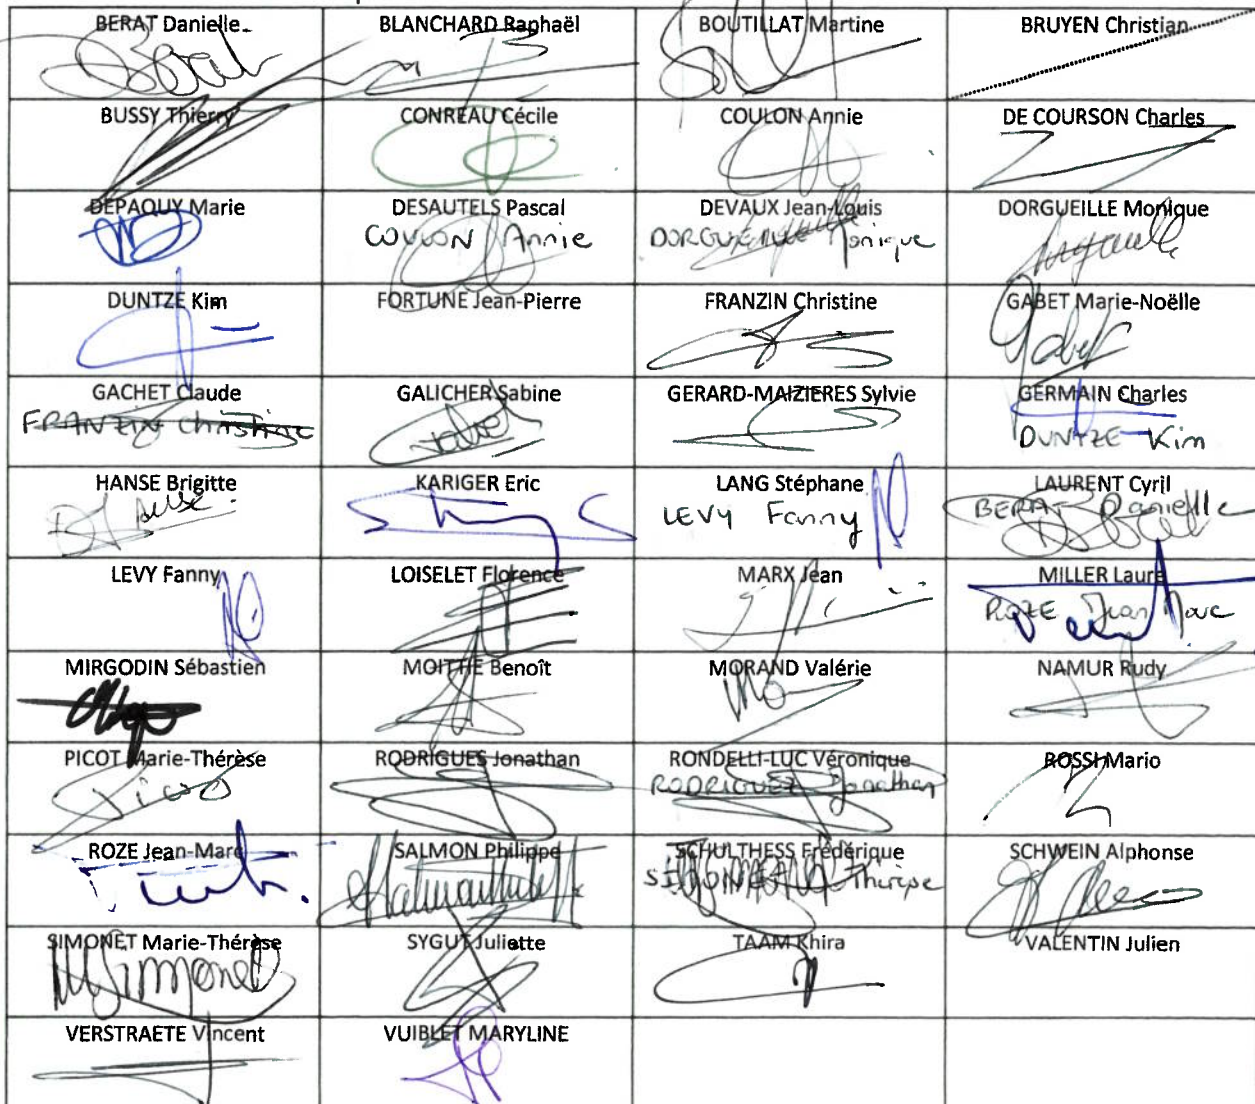 BERAT Danielle
BLANCHARD Raphaël
BOUTILLAT Martine
BRUYEN Christian
BUSSY Thierry
CONREAU Cécile
COULON Annie
DE COURSON Charles
DEPAQUY Marie
DESAUTELS Pascal
COULON Annie
DEVAUX Jean-Louis
DORGUEILLE Monique
DORGUEILLE Monique
DUNTZE Kim
FORTUNE Jean-Pierre
FRANZIN Christine
GABET Marie-Noëlle
Gabet
GACHET Claude
FRANZIN Christine
GALICHER Sabine
GERARD-MAIZIERES Sylvie
GERMAIN Charles
DUNTZE Kim
HANSE Brigitte
KARIGER Eric
LANG Stéphane
LEVY Fanny
LAURENT Cyril
BERAT Danielle
LEVY Fanny
LOISELET Florence
MARX Jean
MILLER Laure
ROZE Jean Marc
MIRGODIN Sébastien
MOITTIE Benoît
MORAND Valérie
NAMUR Rudy
PICOT Marie-Thérèse
RODRIGUES Jonathan
RONDELLI-LUC Véronique
RODRIGUEZ Jonathan
ROSSI Mario
ROZE Jean-Marc
SALMON Philippe
SCHULTHESS Frédérique
SIMONET M Thérèse
SCHWEIN Alphonse
SIMONET Marie-Thérèse
MSimonet
SYGUT Juliette
TAAM Khira
VALENTIN Julien
VERSTRAETE Vincent
VUIBLET MARYLINE